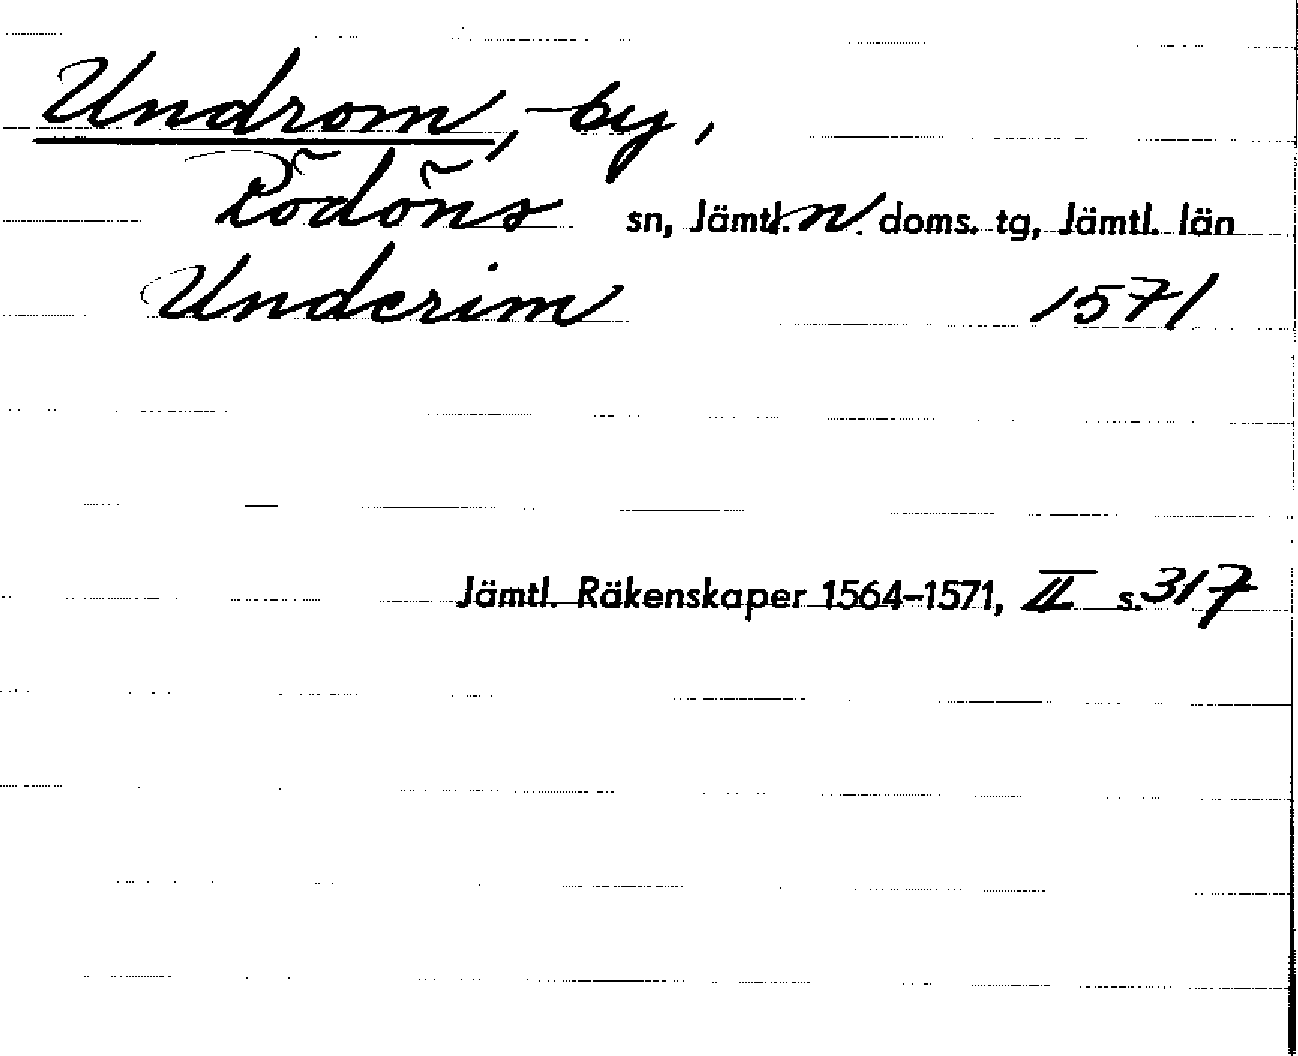 Undrom, by,
Rödöns sn, Jämtl. n. doms. tg, Jämtl. län
Underim 1571
Jämtl. Räkenskaper 1564-1571, II s. 317